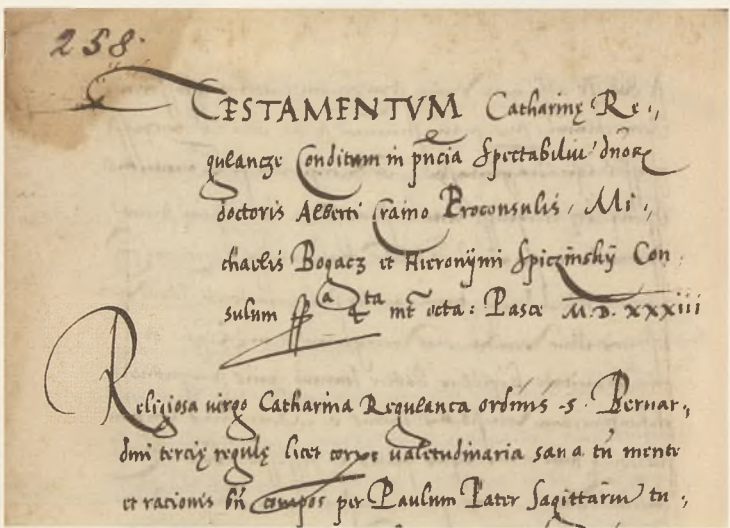 258.
TESTAMENTVM Catharinę Re.,
gulancze Conditum in pn̄cia Spectabiliū dn̄or
doctoris Alberti Craino Proconsulis, Mi.,
chaelis Bogacz et Hieronÿmi Spiczinskÿ Con
sulum ff a qta int̄ octa: Pasce M.D. xxxiii
Religiosa uirgo Catharina Regulanca ordinis .s. Bernar.,
dini tercię regulę licet corpe ualetudinaria sana tn̄ mente
et rationis bn̄ compos per Paulum Pater Sagittariū tu.,